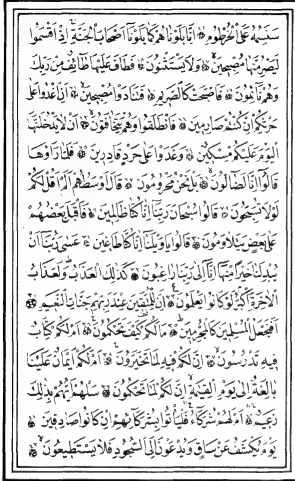 سَنَسِمُهُ عَلَى الْخُرْطُومِ ۞ اِنَّا بَلَوْنَاهُمْ كَمَا بَلَوْنَا اَصْحَابَ الْجَنَّةِ اِذْ اَقْسَمُوا
لَيَصْرِمُنَّهَا مُصْبِحِينَ ۞ وَلَا يَسْتَثْنُونَ ۞ فَطَافَ عَلَيْهَا طَائِفٌ مِنْ رَبِّكَ
وَهُمْ نَائِمُونَ ۞ فَاَصْبَحَتْ كَالصَّرِيمِ ۞ فَتَنَادَوْا مُصْبِحِينَ ۞ اَنِ اغْدُوا عَلَى
حَرْثِكُمْ اِنْ كُنْتُمْ صَارِمِينَ ۞ فَانْطَلَقُوا وَهُمْ يَتَخَافَتُونَ ۞ اَنْ لَا يَدْخُلَنَّهَا
الْيَوْمَ عَلَيْكُمْ مِسْكِينٌ ۞ وَغَدَوْا عَلَى حَرْدٍ قَادِرِينَ ۞ فَلَمَّا رَاَوْهَا
قَالُوا اِنَّا لَضَالُّونَ ۞ بَلْ نَحْنُ مَحْرُومُونَ ۞ قَالَ اَوْسَطُهُمْ اَلَمْ اَقُلْ لَكُمْ
لَوْلَا تُسَبِّحُونَ ۞ قَالُوا سُبْحَانَ رَبِّنَا اِنَّا كُنَّا ظَالِمِينَ ۞ فَاَقْبَلَ بَعْضُهُمْ
عَلَى بَعْضٍ يَتَلَاوَمُونَ ۞ قَالُوا يَاوَيْلَنَا اِنَّا كُنَّا طَاغِينَ ۞ عَسَى رَبُّنَا اَنْ
يُبْدِلَنَا خَيْرًا مِنْهَا اِنَّا اِلَى رَبِّنَا رَاغِبُونَ ۞ كَذَلِكَ الْعَذَابُ وَلَعَذَابُ
الْاٰخِرَةِ اَكْبَرُ لَوْ كَانُوا يَعْلَمُونَ ۞ اِنَّ لِلْمُتَّقِينَ عِنْدَ رَبِّهِمْ جَنَّاتِ النَّعِيمِ ۞
اَفَنَجْعَلُ الْمُسْلِمِينَ كَالْمُجْرِمِينَ ۞ مَا لَكُمْ كَيْفَ تَحْكُمُونَ ۞ اَمْ لَكُمْ كِتَابٌ
فِيهِ تَدْرُسُونَ ۞ اِنَّ لَكُمْ فِيهِ لَمَا تَخَيَّرُونَ ۞ اَمْ لَكُمْ اَيْمَانٌ عَلَيْنَا
بَالِغَةٌ اِلَى يَوْمِ الْقِيٰمَةِ اِنَّ لَكُمْ لَمَا تَحْكُمُونَ ۞ سَلْهُمْ اَيُّهُمْ بِذَلِكَ
زَعِيمٌ ۞ اَمْ لَهُمْ شُرَكَاءُ فَلْيَأْتُوا بِشُرَكَائِهِمْ اِنْ كَانُوا صَادِقِينَ ۞
يَوْمَ يُكْشَفُ عَنْ سَاقٍ وَيُدْعَوْنَ اِلَى السُّجُودِ فَلَا يَسْتَطِيعُونَ ۞